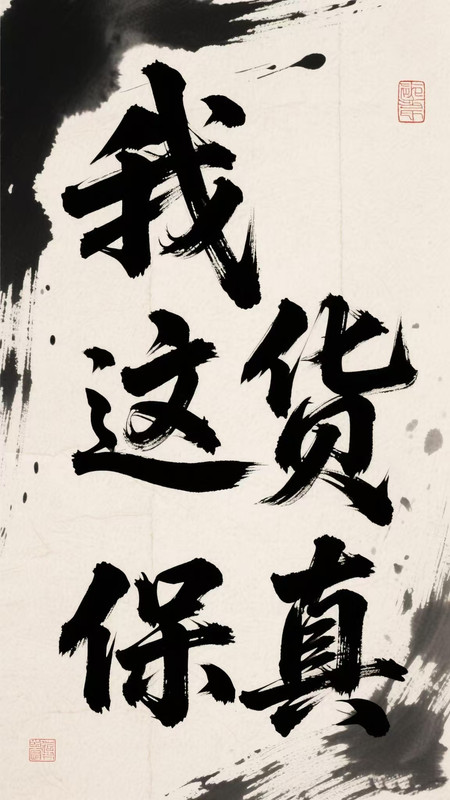 我
这货
保真